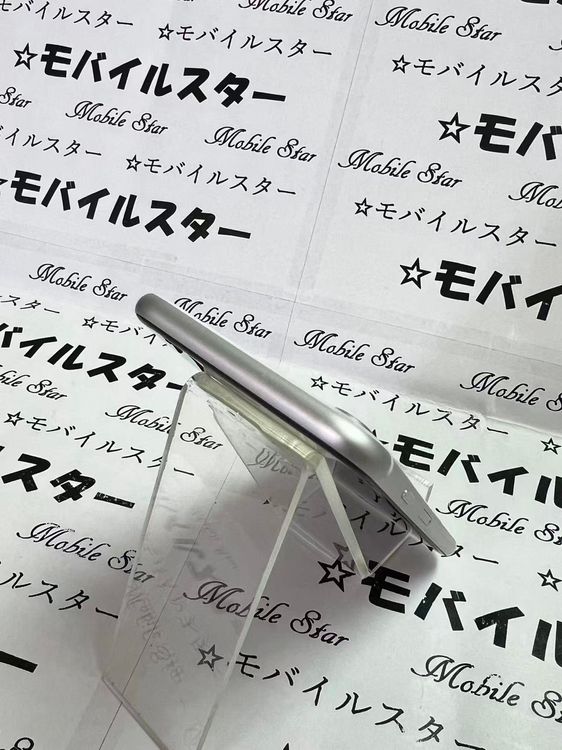 モバイルスター
Mobile Star
☆モバイルスター
Mobile Star
☆モバイルスター
☆モバイルスター
Mobile Star
Mobile Star
☆モバ
☆モバイルスター
Mobile Star
☆モバイルスター
☆モバイルスター
☆モバイ
Mobile Star
Mobile Star
☆モバイルスター
Mobile Star
バイルスター
Mobile Star
☆モバイルスター
Mobile Star
☆モバイルスター
☆モバイル
Mobile Star
スター
Mobile Star
☆モバイル
イルスター
Mobile Star
Mobile Star
☆モバイルスター